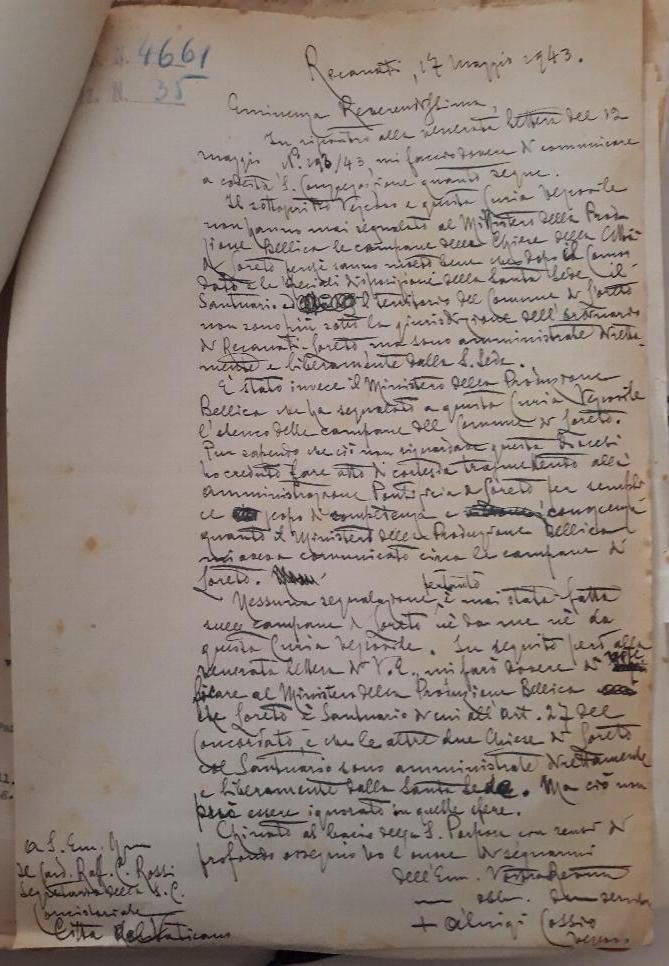 N. 4661
N. 35
Recanati, 17 Maggio 1943.
Eminenza Reverendissima,
In riscontro alla venerata lettera del 12
maggio N. 193/43, mi faccio dovere di comunicare
a codesta S. Congregazione quanto segue.
Il sottoscritto Vescovo e questa Curia Vescovile
non hanno mai segnalato al Ministero della Produ
zione Bellica le campane delle Chiese della Città
di Loreto perchè sanno molto bene che dopo il Concor
dato e le speciali disposizioni della Santa Sede il
Santuario ed il territorio del Comune di Loreto
non sono più sotto la giurisdizione dell'ordinario
di Recanati-Loreto ma sono amministrate diretta-
mente e liberamente dalla S. Sede.
È stato invece il Ministero della Produzione
Bellica che ha segnalato a questa Curia Vescovile
l'elenco delle campane del Comune di Loreto.
Pur sapendo che ciò non riguardava questa Diocesi
ho creduto fare atto di cortesia trasmettendo alla
Amministrazione Pontificia di Loreto per sempli
ce scopo di competenza e conoscenza
quanto il Ministero della Produzione Bellica
mi aveva comunicato circa le campane di
Loreto.
pertanto
Nessuna segnalazione è mai stata fatta
sulle campane di Loreto nè da me nè da
questa Curia Vescovile. In seguito però alla
venerata lettera di V. E. mi farò dovere di noti
ficare al Ministero della Produzione Bellica
che Loreto è Santuario di cui all'Art. 27 del
Concordato, e che le altre due Chiese di Loreto
col Santuario sono amministrate direttamente
e liberamente dalla Santa Sede. Ma ciò non
può essere ignorato in quelle sfere.
Chinato al bacio della S. Porpora con sensi di
profondo ossequio ho l'onore di segnarmi
dell'Em. Vostra Rev.ma
obbl. servo
+ Aluigi Cossio
Vescovo
A S. Em.
il Card. Raf. C. Rossi
Segretario della S. C.
Concistoriale
Città del Vaticano